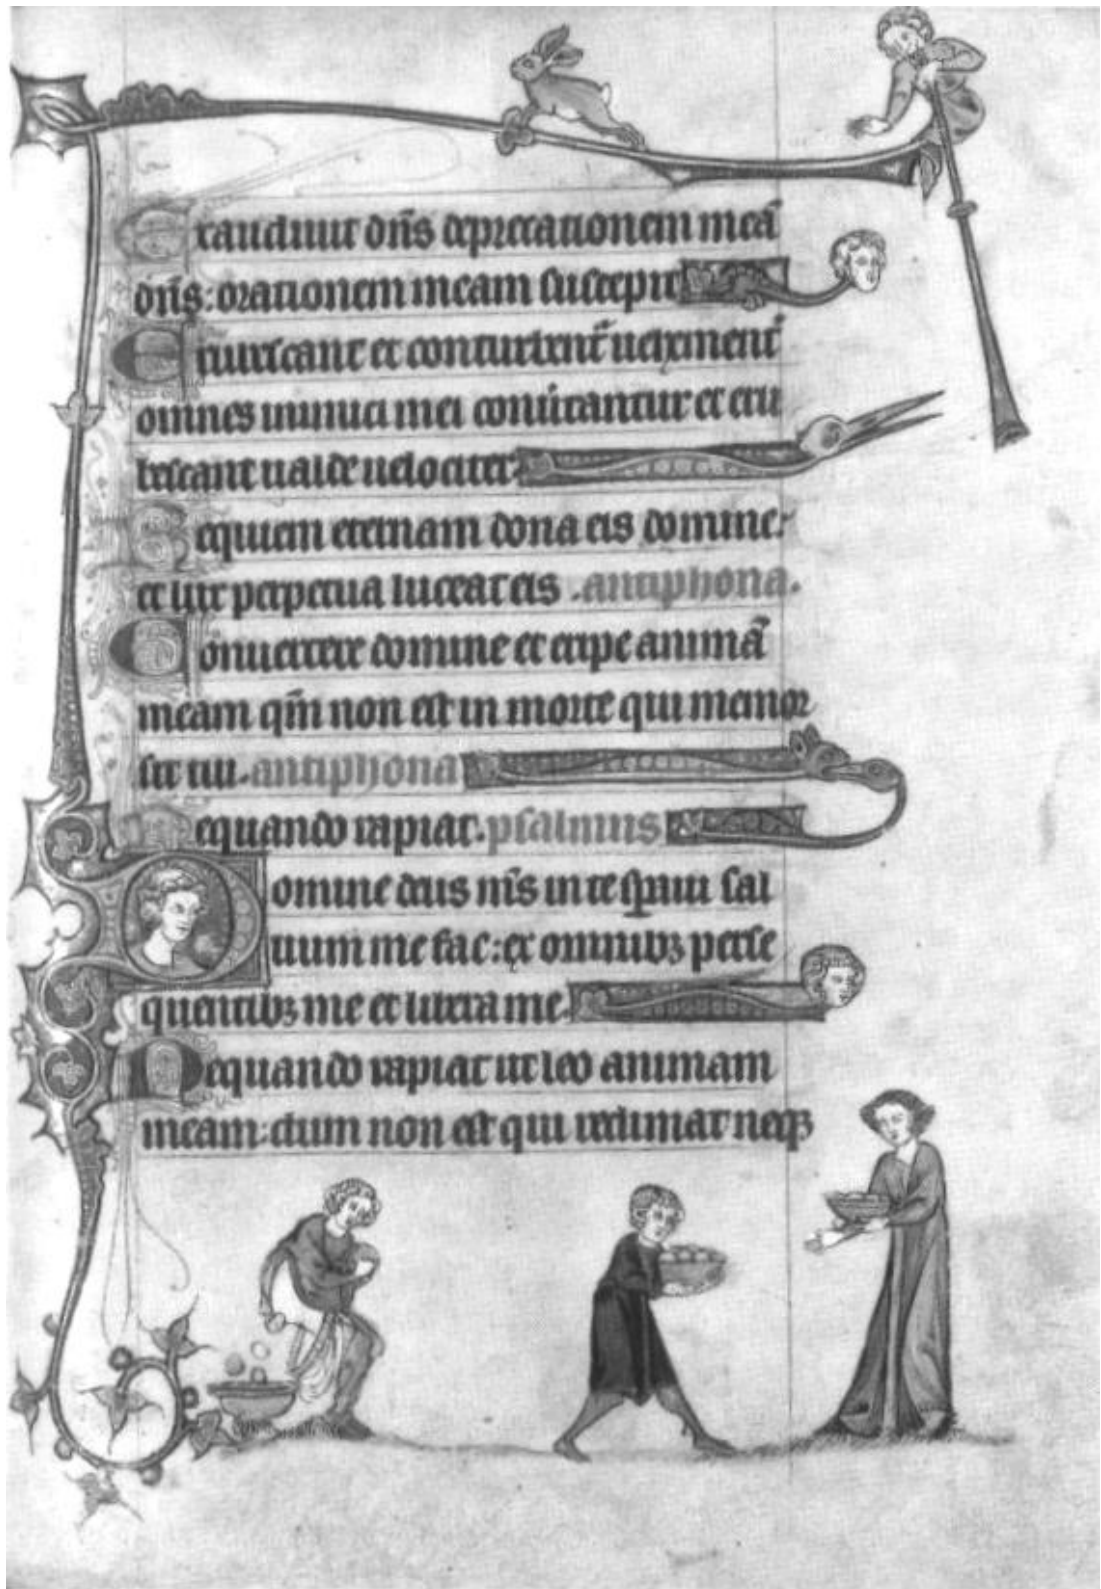 Exaudiuit dñs deprecationem meā
dñs: orationem meam suscepit
Erubescant et conturbent᷑ uehement᷑
omnes inimici mei conũtantur et eru
bescant ualde uelociter.
Requiem eternam dona eis domine:
et lux perpetua luceat eis .antiphona.
Conuertere domine et eripe animā
meam qm̄ non est in morte qui memor
sit tui. antiphona
Nequando rapiat. psalmus
Domine deus m̄s in te speraui sal
uum me fac: ex omnibꝫ perse
quentibꝫ me et libera me.
Nequando rapiat ut leo animam
meam: dum non est qui redimat neqꝫ